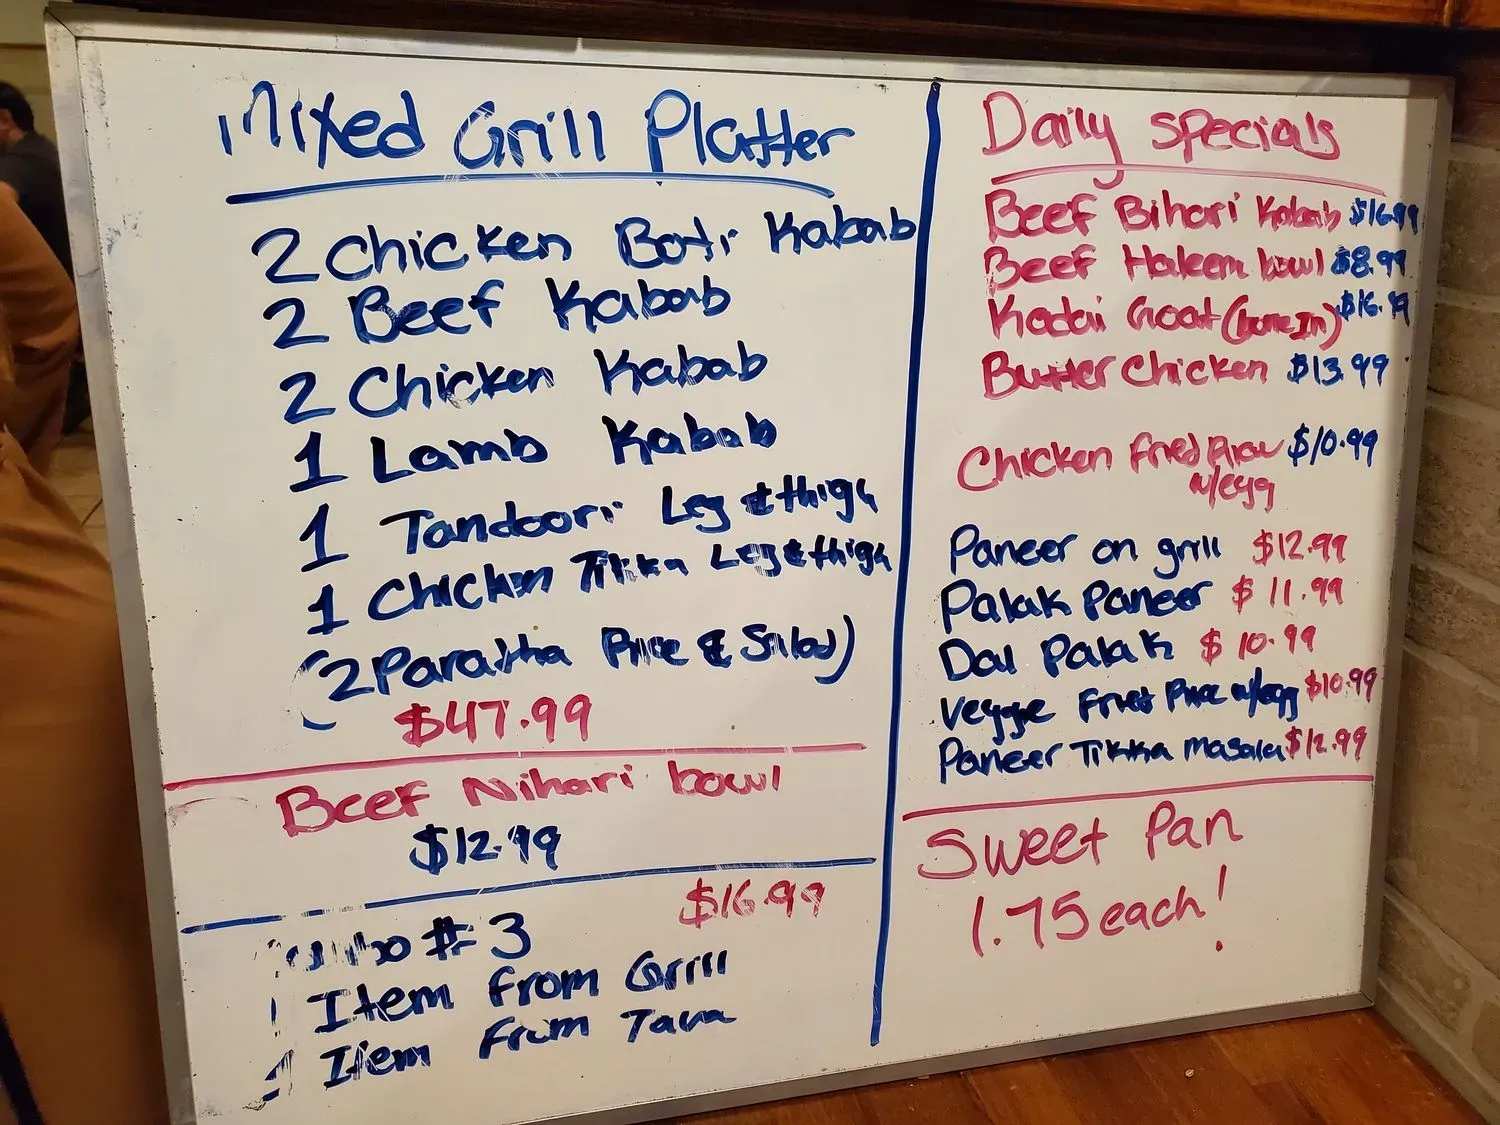 Mixed Grill Platter
2 Chicken Boti Kabab
2 Beef Kabab
2 Chicken Kabab
1 Lamb Kabab
1 Tandoori Leg & thigh
1 Chicken Tikka Leg & thigh
(2 Paratha Rice & Salad)
$47.99
Beef Nihari bowl
$12.99
$16.99
#3
1 Item from Grill
1 Item from Tava
Daily Specials
Beef Bihari Kabab $16.99
Beef Haleem bowl $8.99
Kadai Goat (bone In) $16.99
Butter Chicken $13.99
Chicken Fried Rice $10.99
w/egg
Paneer on grill $12.99
Palak Paneer $11.99
Dal Palak $10.99
Veggie Fried Rice w/egg $10.99
Paneer Tikka Masala $12.99
Sweet Pan
1.75 each!